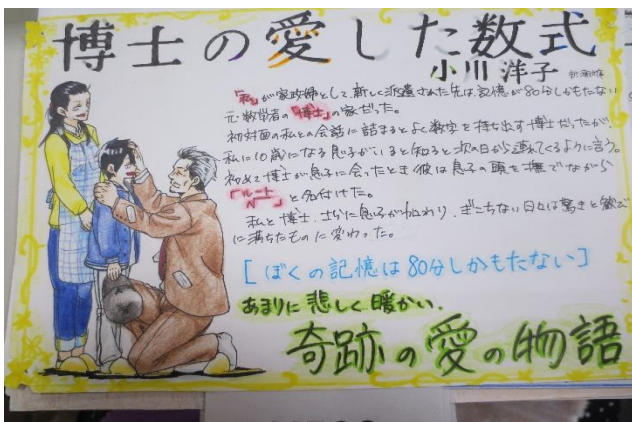 博士の愛した数式
小川洋子 新潮文庫
「私」が家政婦として新しく派遣された先は記憶が80分しかもたない
元数学者の「博士」の家だった。
初対面の私との会話に詰まるとよく数字を持ち出す博士だったが、
私に10歳になる息子がいると知ると次の日から連れてくるように言う。
初めて博士が息子に会ったとき彼は息子の頭を撫でながら
「ルート√」と名付けた。
私と博士、さらに息子が加わり、ぎこちない日々は驚きと歓び
に満ちたものに変わった。
[ぼくの記憶は80分しかもたない]
あまりに悲しく暖かい、
奇跡の愛の物語